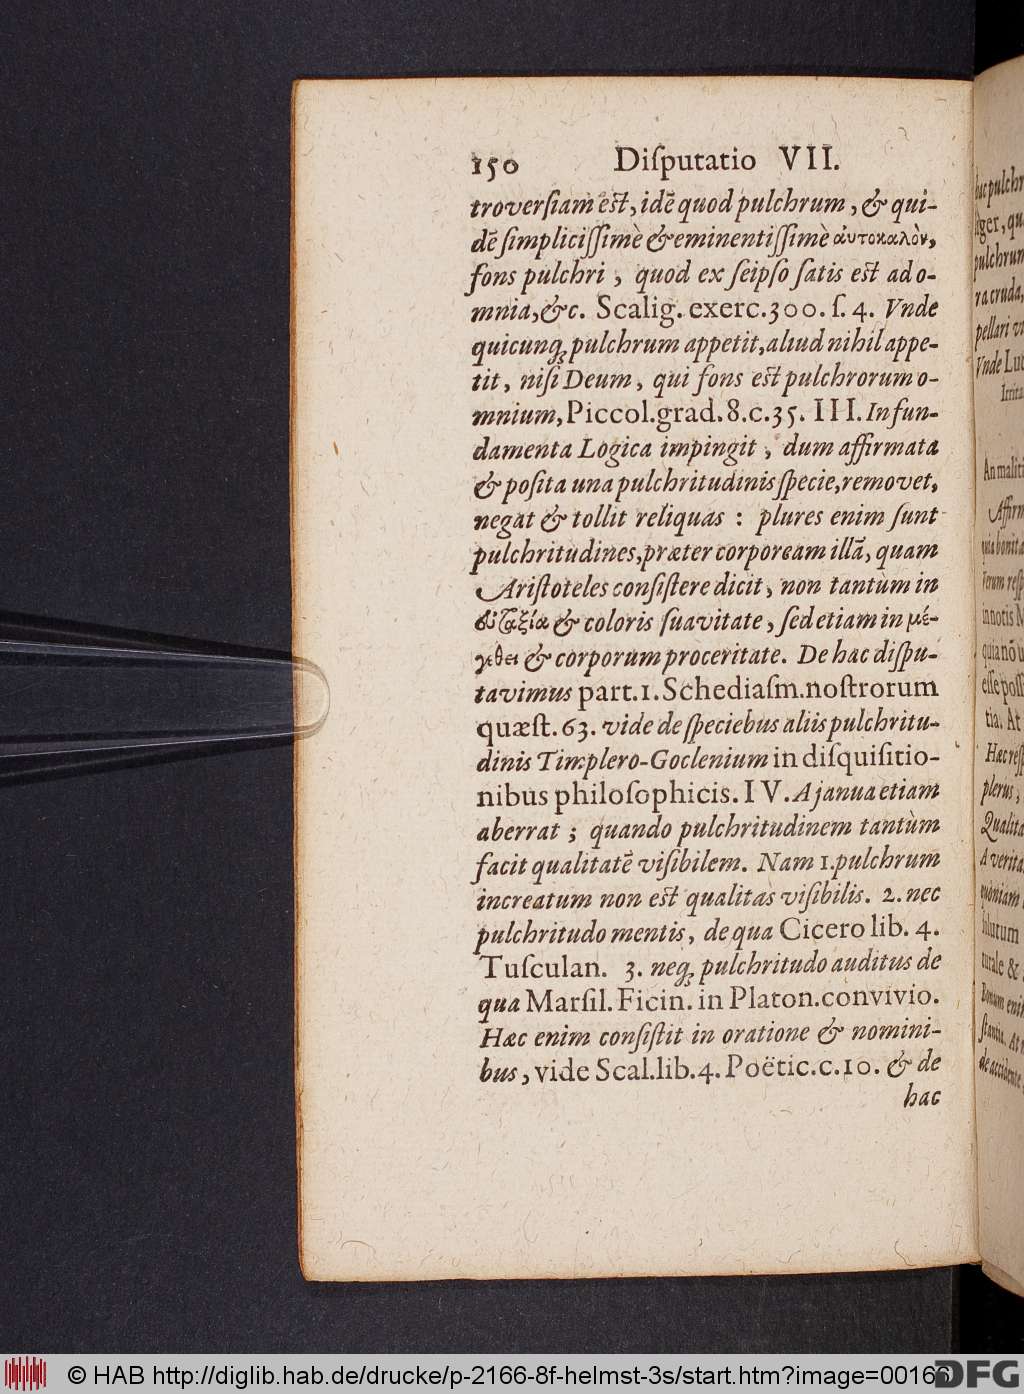 150 Diſputatio VII.
troverſiam eſt, idẽ quod pulchrum, & qui-
dẽ ſimpliciſſimè & eminentiſſimè ἀυτοκαλὸν,
fons pulchri, quod ex ſeipſo ſatis eſt ad o-
mnia, &c. Scalig. exerc. 300. ſ. 4. Vnde
quicunq; pulchrum appetit, aliud nihil appe-
tit, niſi Deum, qui fons eſt pulchrorum o-
mnium, Piccol. grad. 8. c. 35. III. In fun-
damenta Logica impingit, dum affirmata
& poſita una pulchritudinis ſpecie, removet,
negat & tollit reliquas: plures enim ſunt
pulchritudines, præter corpoream illã, quam
Ariſtoteles conſiſtere dicit, non tantùm in
ἐυταξία & coloris ſuavitate, ſed etiam in μέ-
γεθει & corporum proceritate. De hac diſpu-
tavimus part. 1. Schediaſm. noſtrorum
quæſt. 63. vide de ſpeciebus aliis pulchritu-
dinis Timplero-Goclenium in diſquiſitio-
nibus philoſophicis. IV. A janua etiam
aberrat; quando pulchritudinem tantùm
facit qualitatẽ viſibilem. Nam 1. pulchrum
increatum non eſt qualitas viſibilis. 2. nec
pulchritudo mentis, de qua Cicero lib. 4.
Tuſculan. 3. neq; pulchritudo auditus de
qua Marſil. Ficin. in Platon. convivio.
Hæc enim conſiſtit in oratione & nomini-
bus, vide Scal. lib. 4. Poëtic. c. 10. & de
hac
hac pulchr
pulchrum
ra cruda,
pellari
Vnde Luc
Irrita
An maliti
Affirm
quia bonita
Verum reſp
in notis
quia nõ
eſſe poſſ
tia. At
Hæc reſp
plerus,
Qualita
A verita
turale &
Bonum eni
de accidente
© HAB http://diglib.hab.de/drucke/p-2166-8f-helmst-3s/start.htm?image=00166
DFG